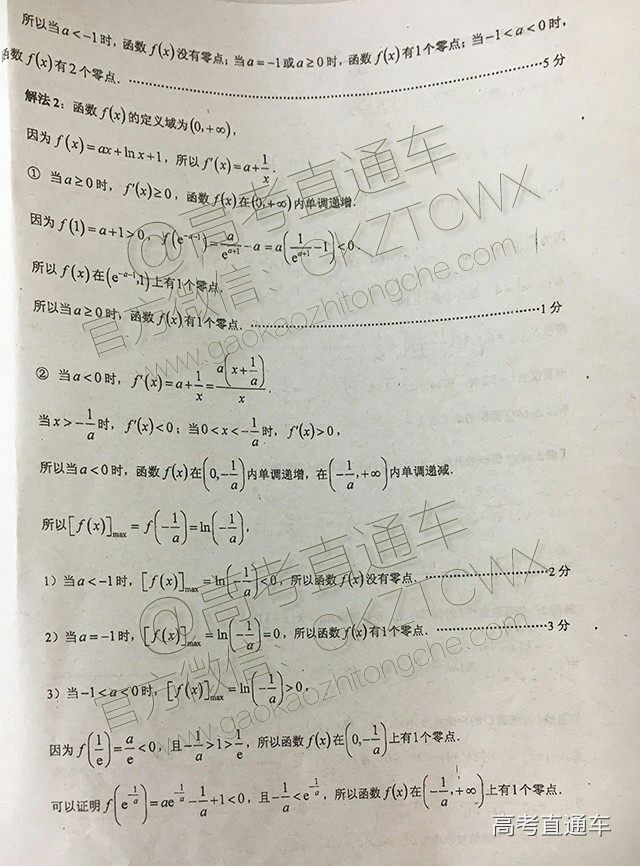 所以当a<-1时，函数f(x)没有零点；当a=-1或a≥0时，函数f(x)有1个零点；当-1<a<0时，
函数f(x)有2个零点. ……5分
解法2：函数f(x)的定义域为(0,+∞)，
因为f(x)=ax+ln x+1，所以f′(x)=a+1/x.
① 当a≥0时，f′(x)≥0，函数f(x)在(0,+∞)内单调递增.
因为f(1)=a+1>0，f(e^(-a-1))=a/e^(a+1)-a=a(1/e^(a+1)-1)<0
所以f(x)在(e^(-a-1),1)上有1个零点.
所以当a≥0时，函数f(x)有1个零点. ……1分
② 当a<0时，f′(x)=a+1/x=a(x+1/a)/x.
当x>-1/a时，f′(x)<0；当0<x<-1/a时，f′(x)>0，
所以当a<0时，函数f(x)在(0,-1/a)内单调递增，在(-1/a,+∞)内单调递减.
所以[f(x)]max=f(-1/a)=ln(-1/a)，
1）当a<-1时，[f(x)]max=ln(-1/a)<0，所以函数f(x)没有零点. ……2分
2）当a=-1时，[f(x)]max=ln(-1/a)=0，所以函数f(x)有1个零点. ……3分
3）当-1<a<0时，[f(x)]max=ln(-1/a)>0，
因为f(1/e)=a/e<0，且-1/a>1>1/e，所以函数f(x)在(0,-1/a)上有1个零点.
可以证明f(e^(-1/a))=ae^(-1/a)-1/a+1<0，且-1/a<e^(-1/a)，所以函数f(x)在(-1/a,+∞)上有1个零点.
@高考直通车
官方微信：GKZTCWX
www.gaokaozhitongche.com
@高考直通车
官方微信：GKZTCWX
www.gaokaozhitongche.com
高考直通车